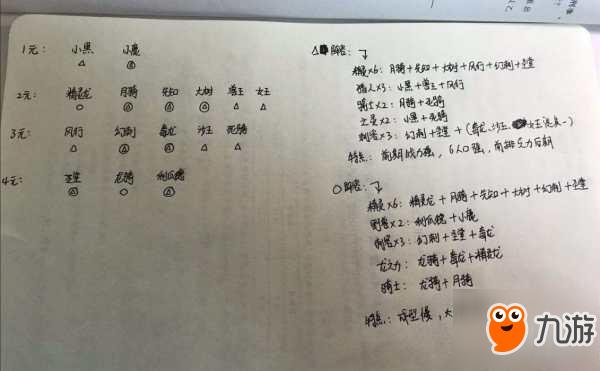 1元: 小黑 小鹿
△ △
2元: 精灵龙 月骑 先知 大树 兽王 女王
○ △ △ △ △ △
3元: 风行 幻刺 毒龙 沙王 死骑
△ △ △ △ △
4元: 圣堂 龙骑 利爪德
△ ○ △
△阵容:
精灵×6: 月骑+先知+大树+风行+幻刺+圣堂
猎人×3: 小黑+兽王+风行
骑士×2: 月骑+死骑
亡灵×2: 小黑+死骑
刺客×3: 幻刺+圣堂+(毒龙、沙王、女王选其一)
特点: 前期战力强, 6人口强, 前排乏力后期
○阵容:
精灵×6: 精灵龙+月骑+先知+大树+幻刺+圣堂
德×2: 利爪德+小鹿
刺客×3: 幻刺+圣堂+毒龙
龙之力: 龙骑+毒龙+精灵龙
骑士: 龙骑+月骑
特点: 成型慢, 大
九游